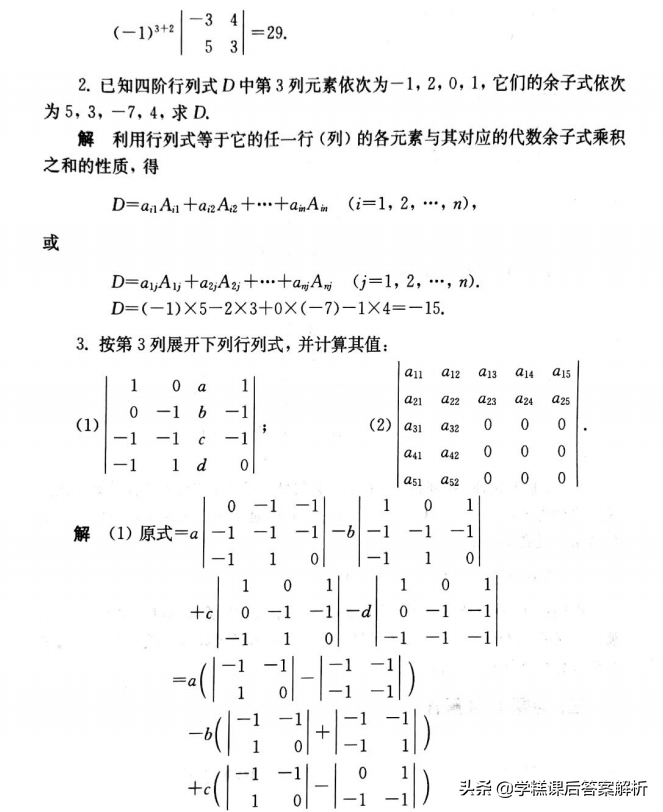 (-1)³⁺² | -3 4 ; 5 3 | =29.
2. 已知四阶行列式 D 中第 3 列元素依次为-1, 2, 0, 1, 它们的余子式依次
为 5, 3, -7, 4, 求 D.
解 利用行列式等于它的任一行(列)的各元素与其对应的代数余子式乘积
之和的性质, 得
D=a_{i1}A_{i1}+a_{i2}A_{i2}+⋯+a_{in}A_{in} (i=1, 2, ⋯, n),
或
D=a_{1j}A_{1j}+a_{2j}A_{2j}+⋯+a_{nj}A_{nj} (j=1, 2, ⋯, n).
D=(-1)×5-2×3+0×(-7)-1×4=-15.
3. 按第 3 列展开下列行列式, 并计算其值:
(1) | 1 0 a 1 ; 0 -1 b -1 ; -1 -1 c -1 ; -1 1 d 0 | ;
(2) | a₁₁ a₁₂ a₁₃ a₁₄ a₁₅ ; a₂₁ a₂₂ a₂₃ a₂₄ a₂₅ ; a₃₁ a₃₂ 0 0 0 ; a₄₁ a₄₂ 0 0 0 ; a₅₁ a₅₂ 0 0 0 | .
解 (1) 原式=a | 0 -1 -1 ; -1 -1 -1 ; -1 1 0 | -b | 1 0 1 ; -1 -1 -1 ; -1 1 0 |
+c | 1 0 1 ; 0 -1 -1 ; -1 1 0 | -d | 1 0 1 ; 0 -1 -1 ; -1 -1 -1 |
=a( | -1 -1 ; 1 0 | - | -1 -1 ; -1 -1 | )
-b( | -1 -1 ; 1 0 | + | -1 -1 ; -1 1 | )
+c( | -1 -1 ; 1 0 | - | 0 1 ; -1 -1 | )
头条 @学糕课后答案解析